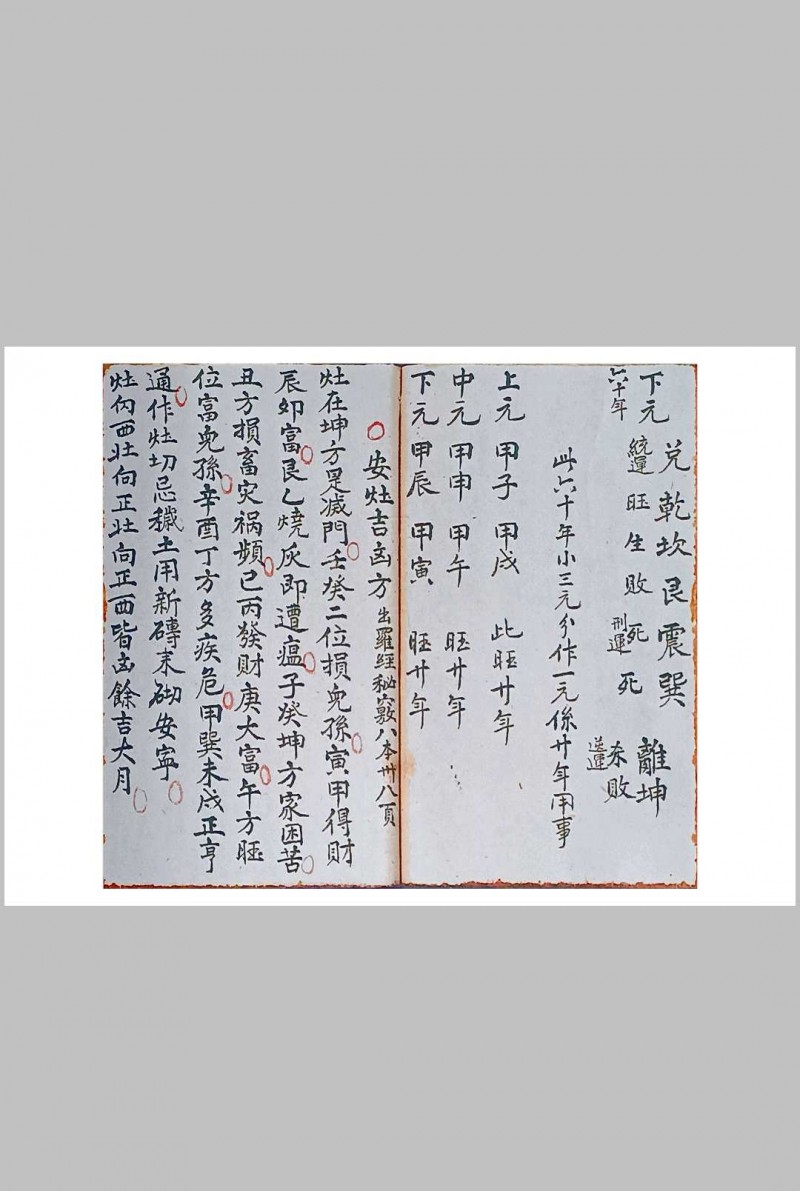 下元 六十年
兌乾坎艮震巽 離坤
統運 旺生敗死死 刑運 杀敗 退運
此六十年小三元分作一元係廿年用事
上元 甲子 甲戌 此旺廿年
中元 甲申 甲午 旺廿年
下元 甲辰 甲寅 旺廿年
安灶吉凶方 出羅經秘竅八本卅八頁
灶在坤方是滅門壬癸二位損児孫寅甲得財
辰卯富艮乙燒灰即遭瘟子癸坤方家困苦
丑方損畜灾祸頻巳丙發財庚大富午方旺
位富児孫辛酉丁方多疾危甲巽未戌正亨
通作灶切忌穢土用新磚来砌安寧
灶向西灶向正灶向正西皆凶餘吉大月